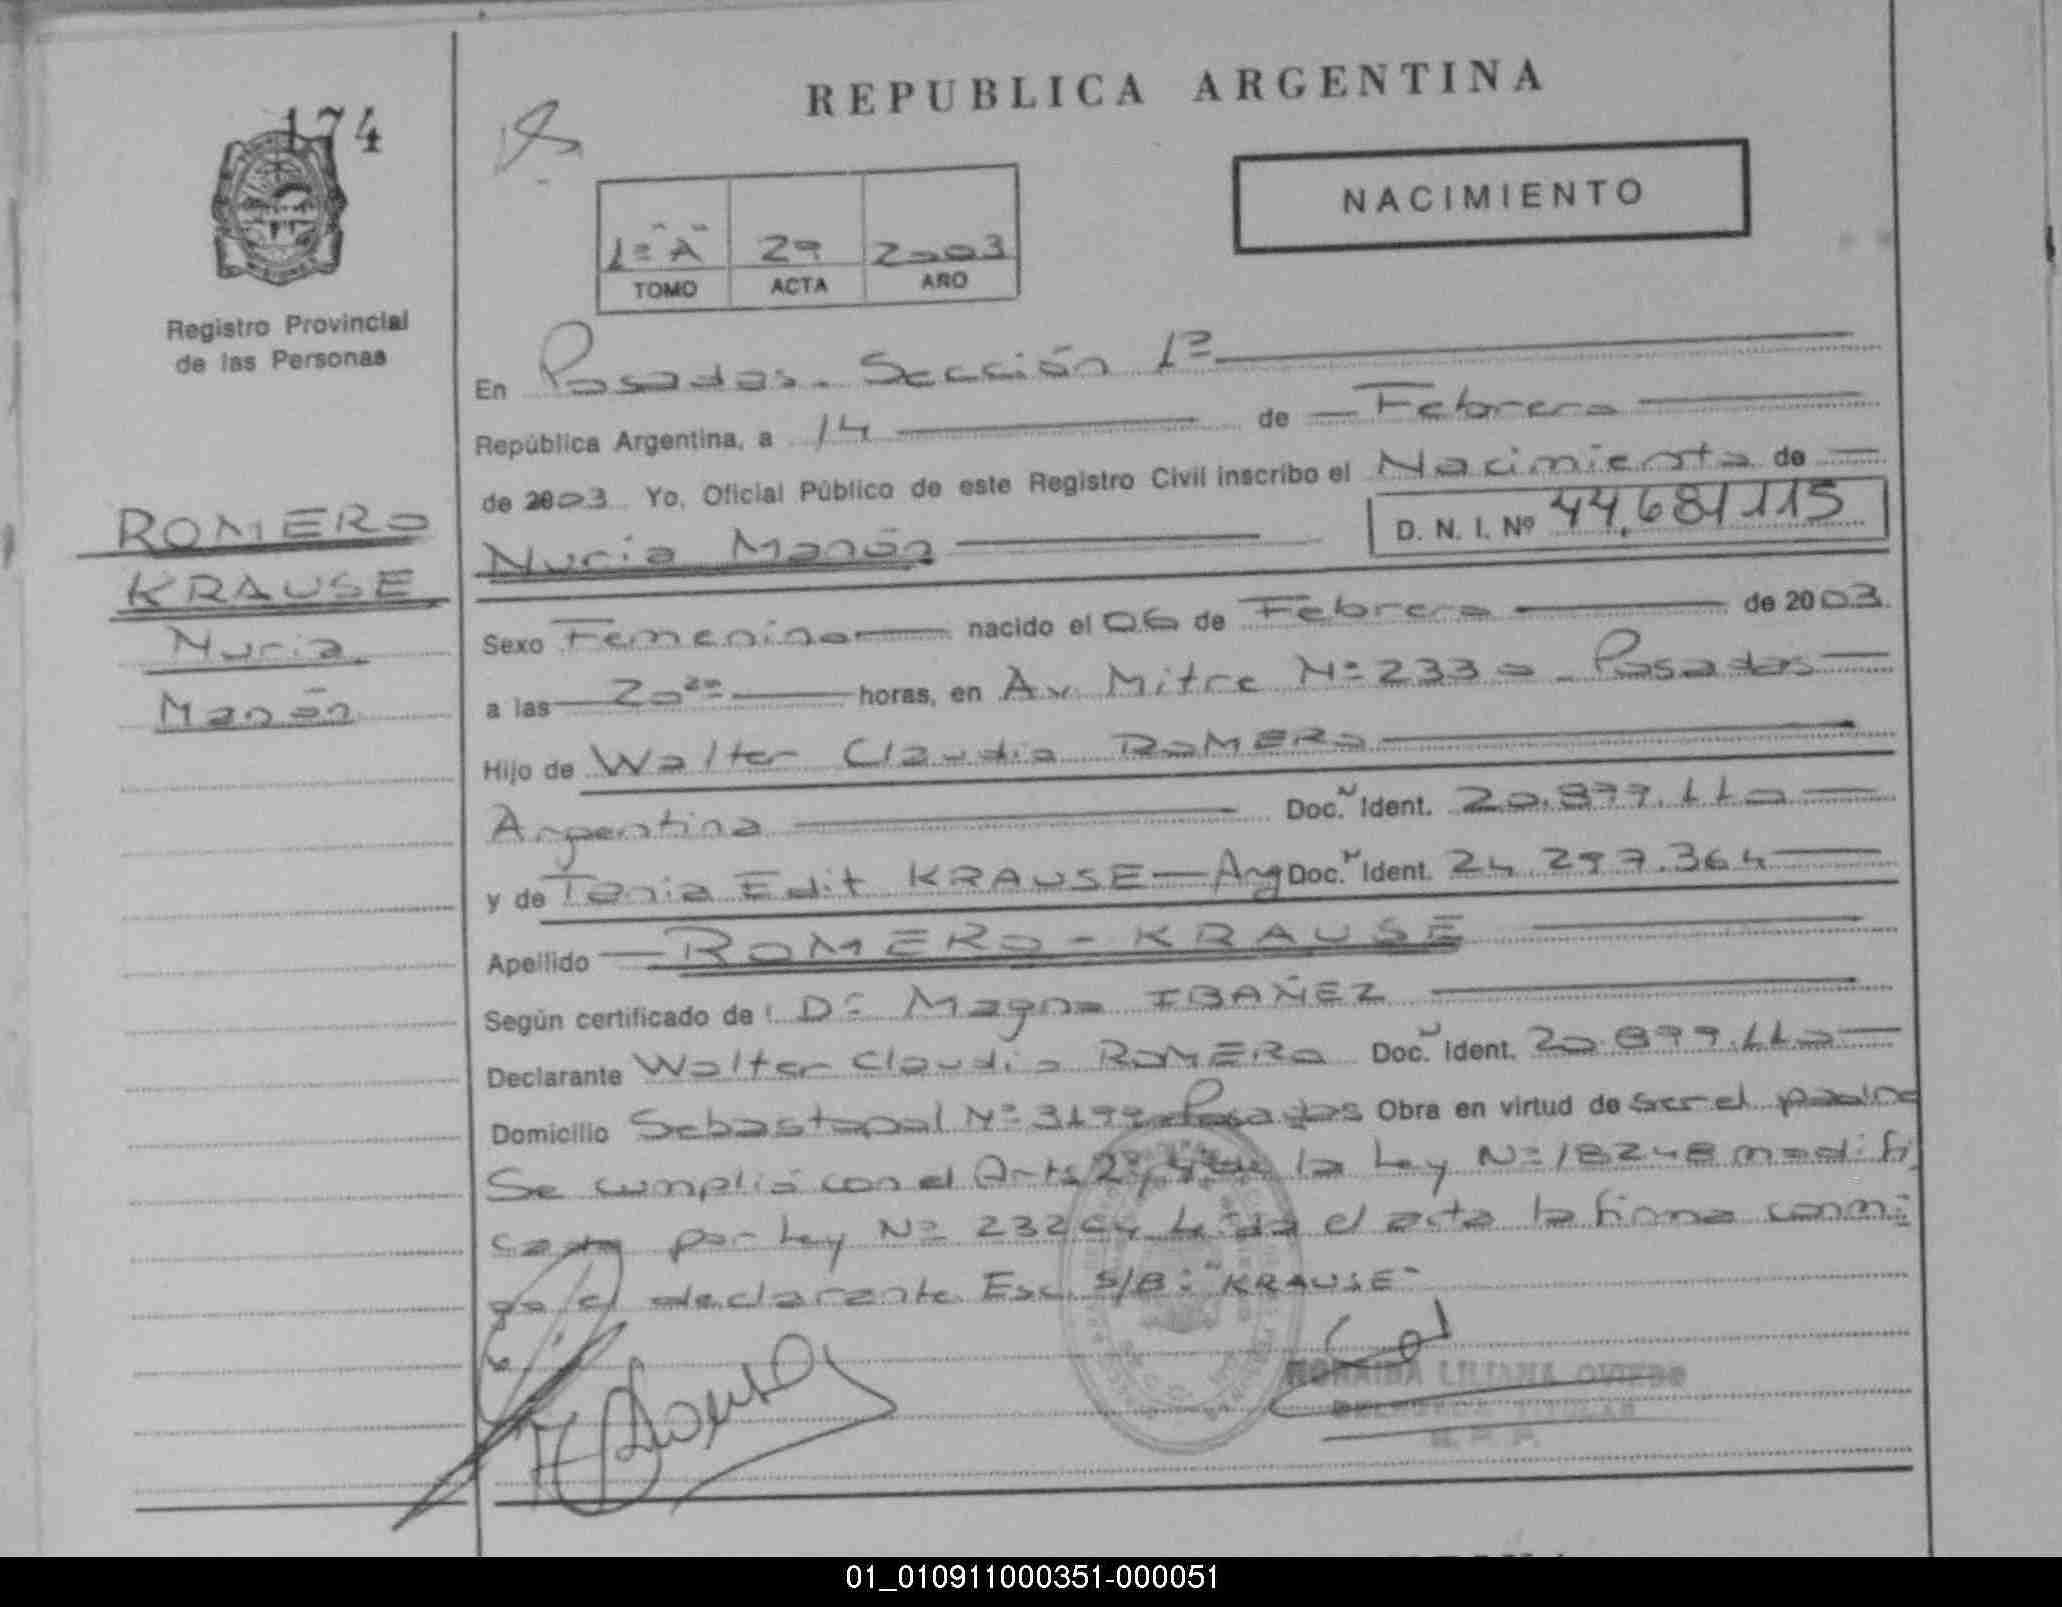 REPUBLICA ARGENTINA
174
NACIMIENTO
1º "A" 29 2003
TOMO ACTA AÑO
Registro Provincial
de las Personas
ROMERO
KRAUSE
Nuria
Manón
En Posadas. Sección 1º
República Argentina, a 14 de Febrero
de 2003 Yo, Oficial Público de este Registro Civil inscribo el Nacimiento de
Nuria Manón D. N. I. Nº 44.681115
Sexo Femenino nacido el 06 de Febrero de 2003
a las 20²⁰ horas, en Av. Mitre Nº 2330 - Posadas
Hijo de Walter Claudio ROMERO
Argentina Doc. Ident. 20.899.110
y de Tania Edit KRAUSE - Arg Doc. Ident. 24.297.364
Apellido ROMERO - KRAUSE
Según certificado de: Dº Magna IBAÑEZ
Declarante Walter Claudio ROMERO Doc. Ident. 20.899.110
Domicilio Sebastopol Nº Posadas Obra en virtud de ser el padre
Se cumplió con el Arts 2º, la Ley Nº 18248 modifi
cada por Ley Nº 23264 Leida el acta la firma conmi
go el declarante Esc. S/B: "KRAUSE"
LILIANA OVIEDO
DELEGADA TITULAR
R. P. P.
01_010911000351-000051